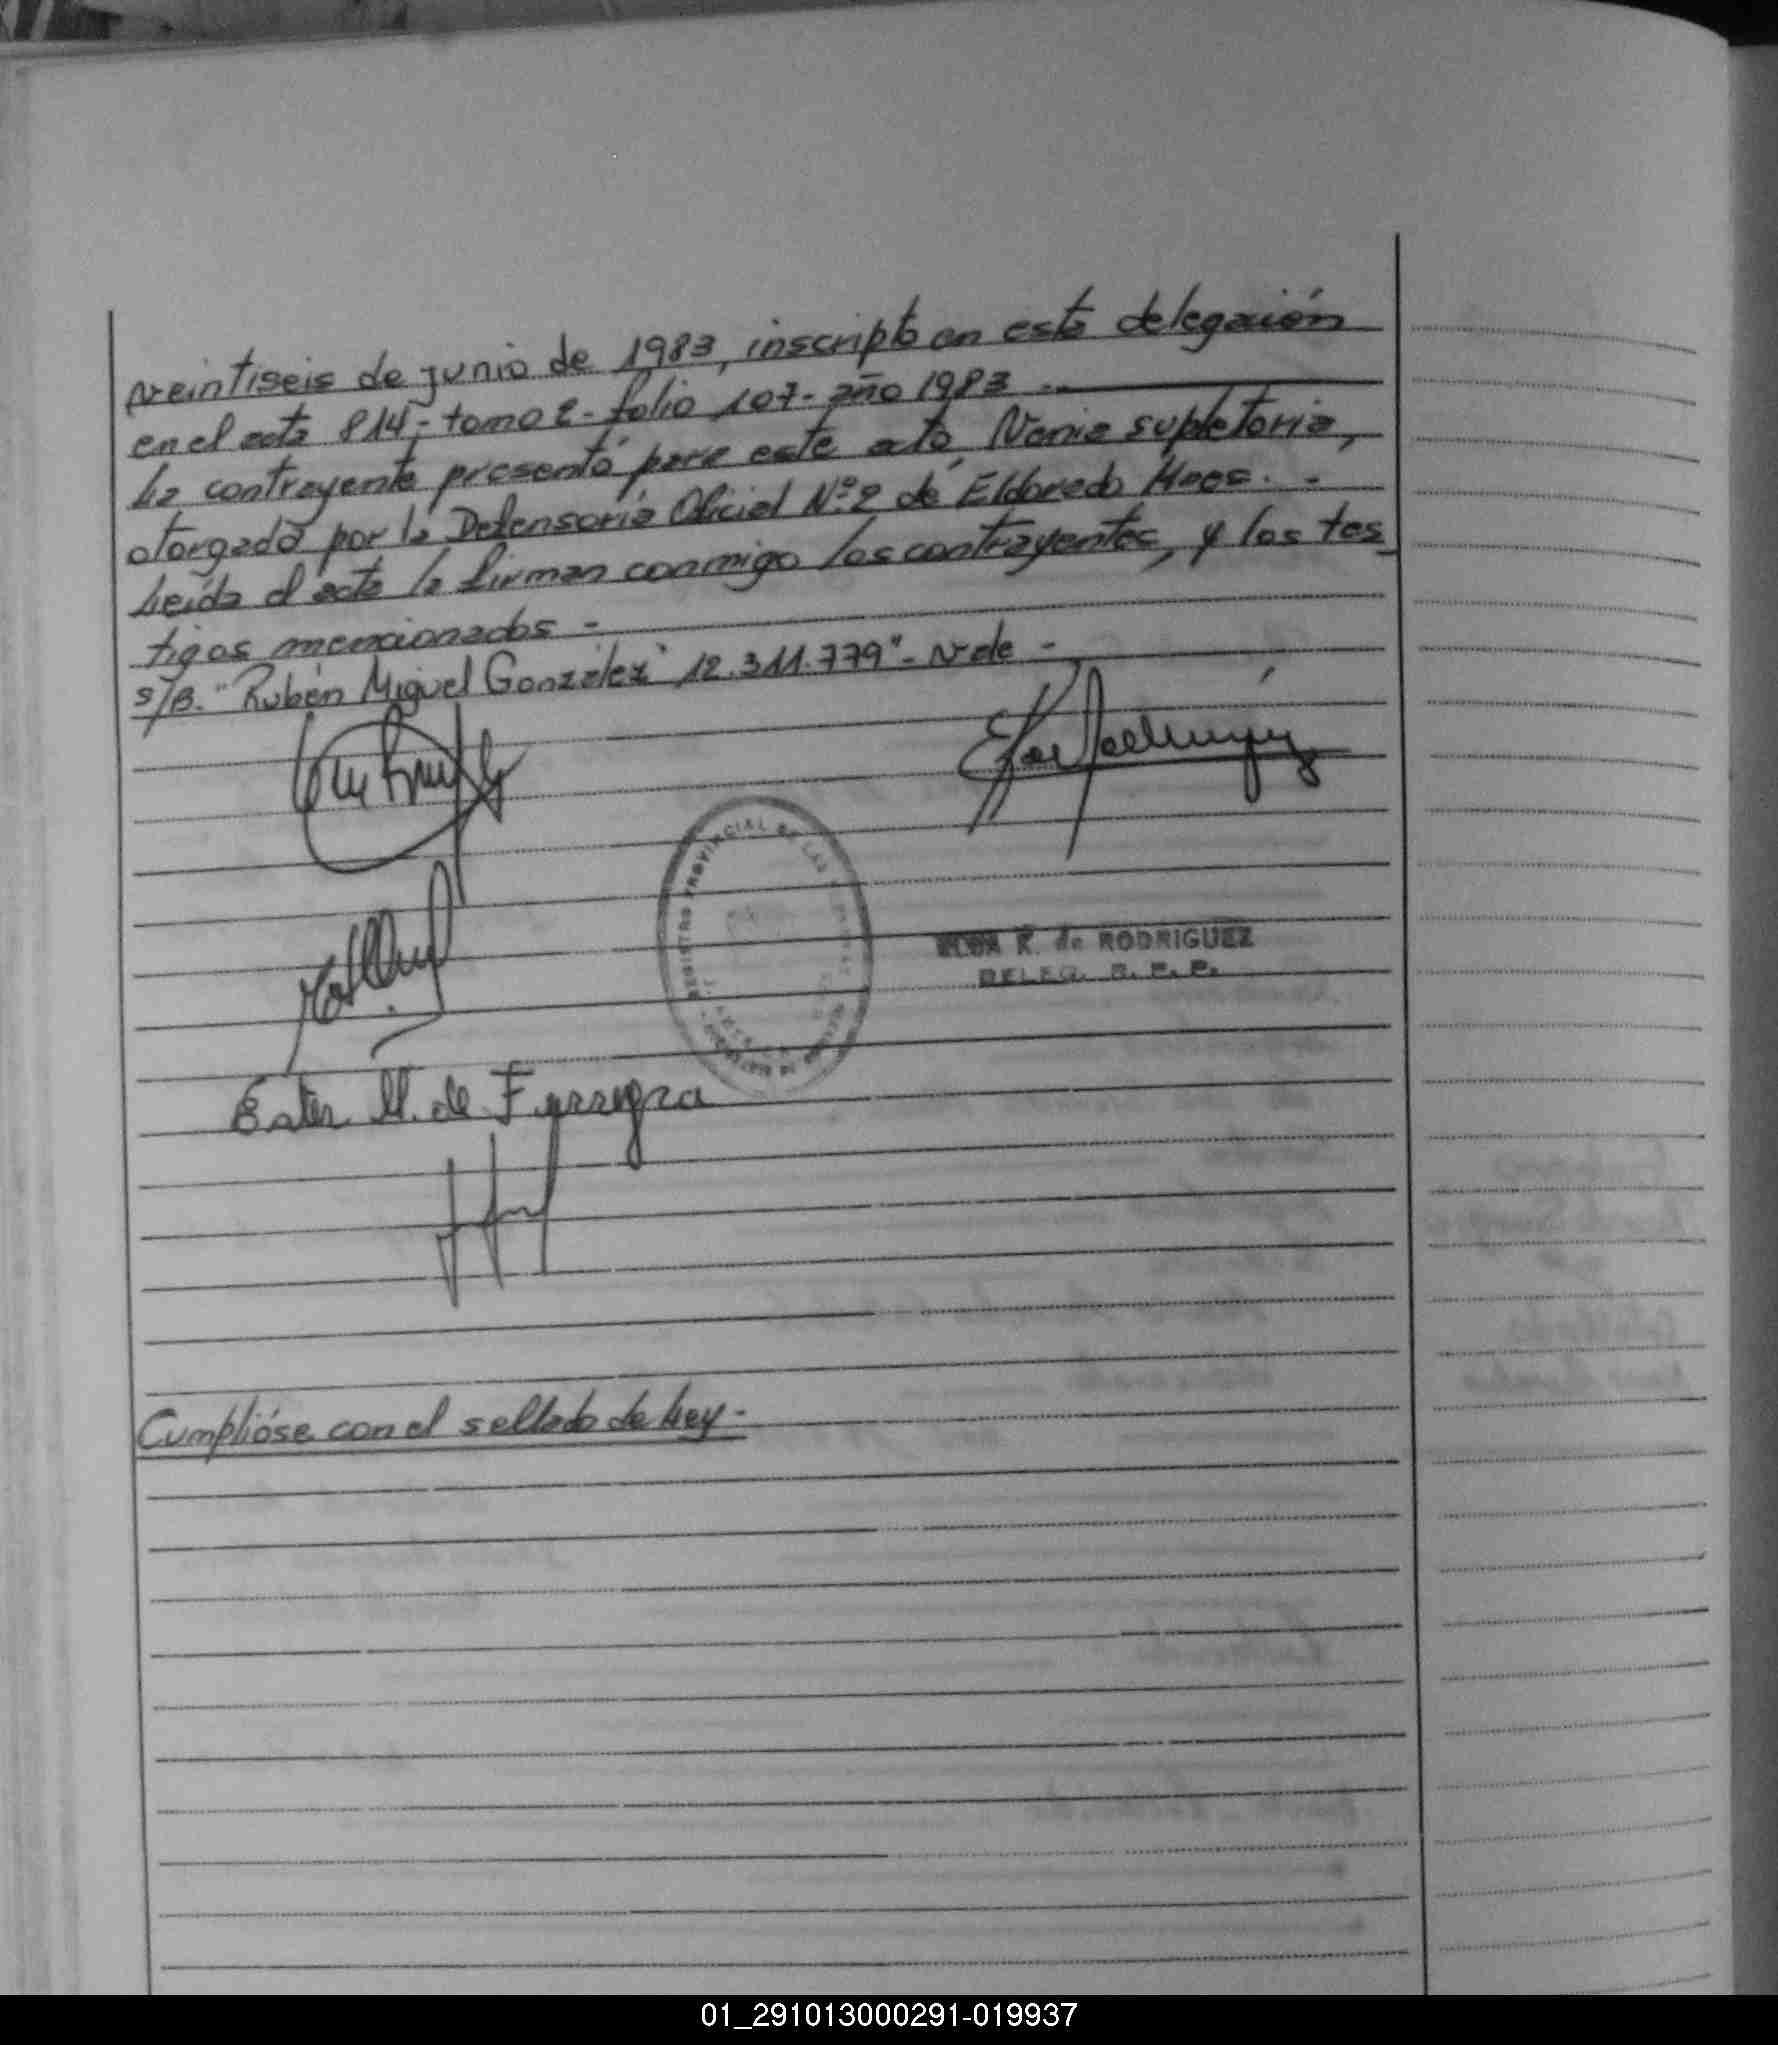 veintiseis de junio de 1983, inscripto en esta delegación
en el acta 814,- tomo 2- folio 107- año 1983 -.
La contrayente presentó para este acto, Venia supletoria,
otorgado por la Defensoría Oficial Nº 2 de Eldorado Mnes. -
Leída el acta la firman conmigo los contrayentes, y los tes
tigos mencionados -
S/B. "Rubén Miguel González" 12.311.779"- Vale -
REGISTRO PROVINCIAL DE LAS
R. de RODRIGUEZ
DELEG. R. P. P.
Ester M. de Ferreyra
Cumplióse con el sellado de Ley -
01_291013000291-019937